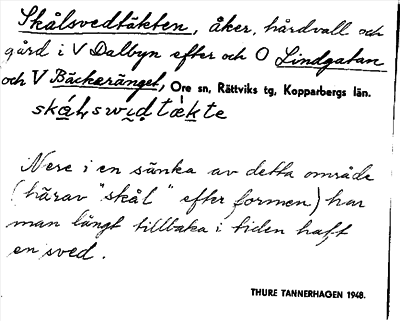 Skålsvedtäkten, åker, hårdvall och
gård i V Dalbyn efter och O Lindgatan
och V Bäckerängel, Ore sn, Rättviks tg, Kopparbergs län.
skǻl,swi̯d tɑ̀kte
Nere i en sänka av detta område
(härav "skål" efter formen) har
man långt tillbaka i tiden haft
en sved.
THURE TANNERHAGEN 1948.